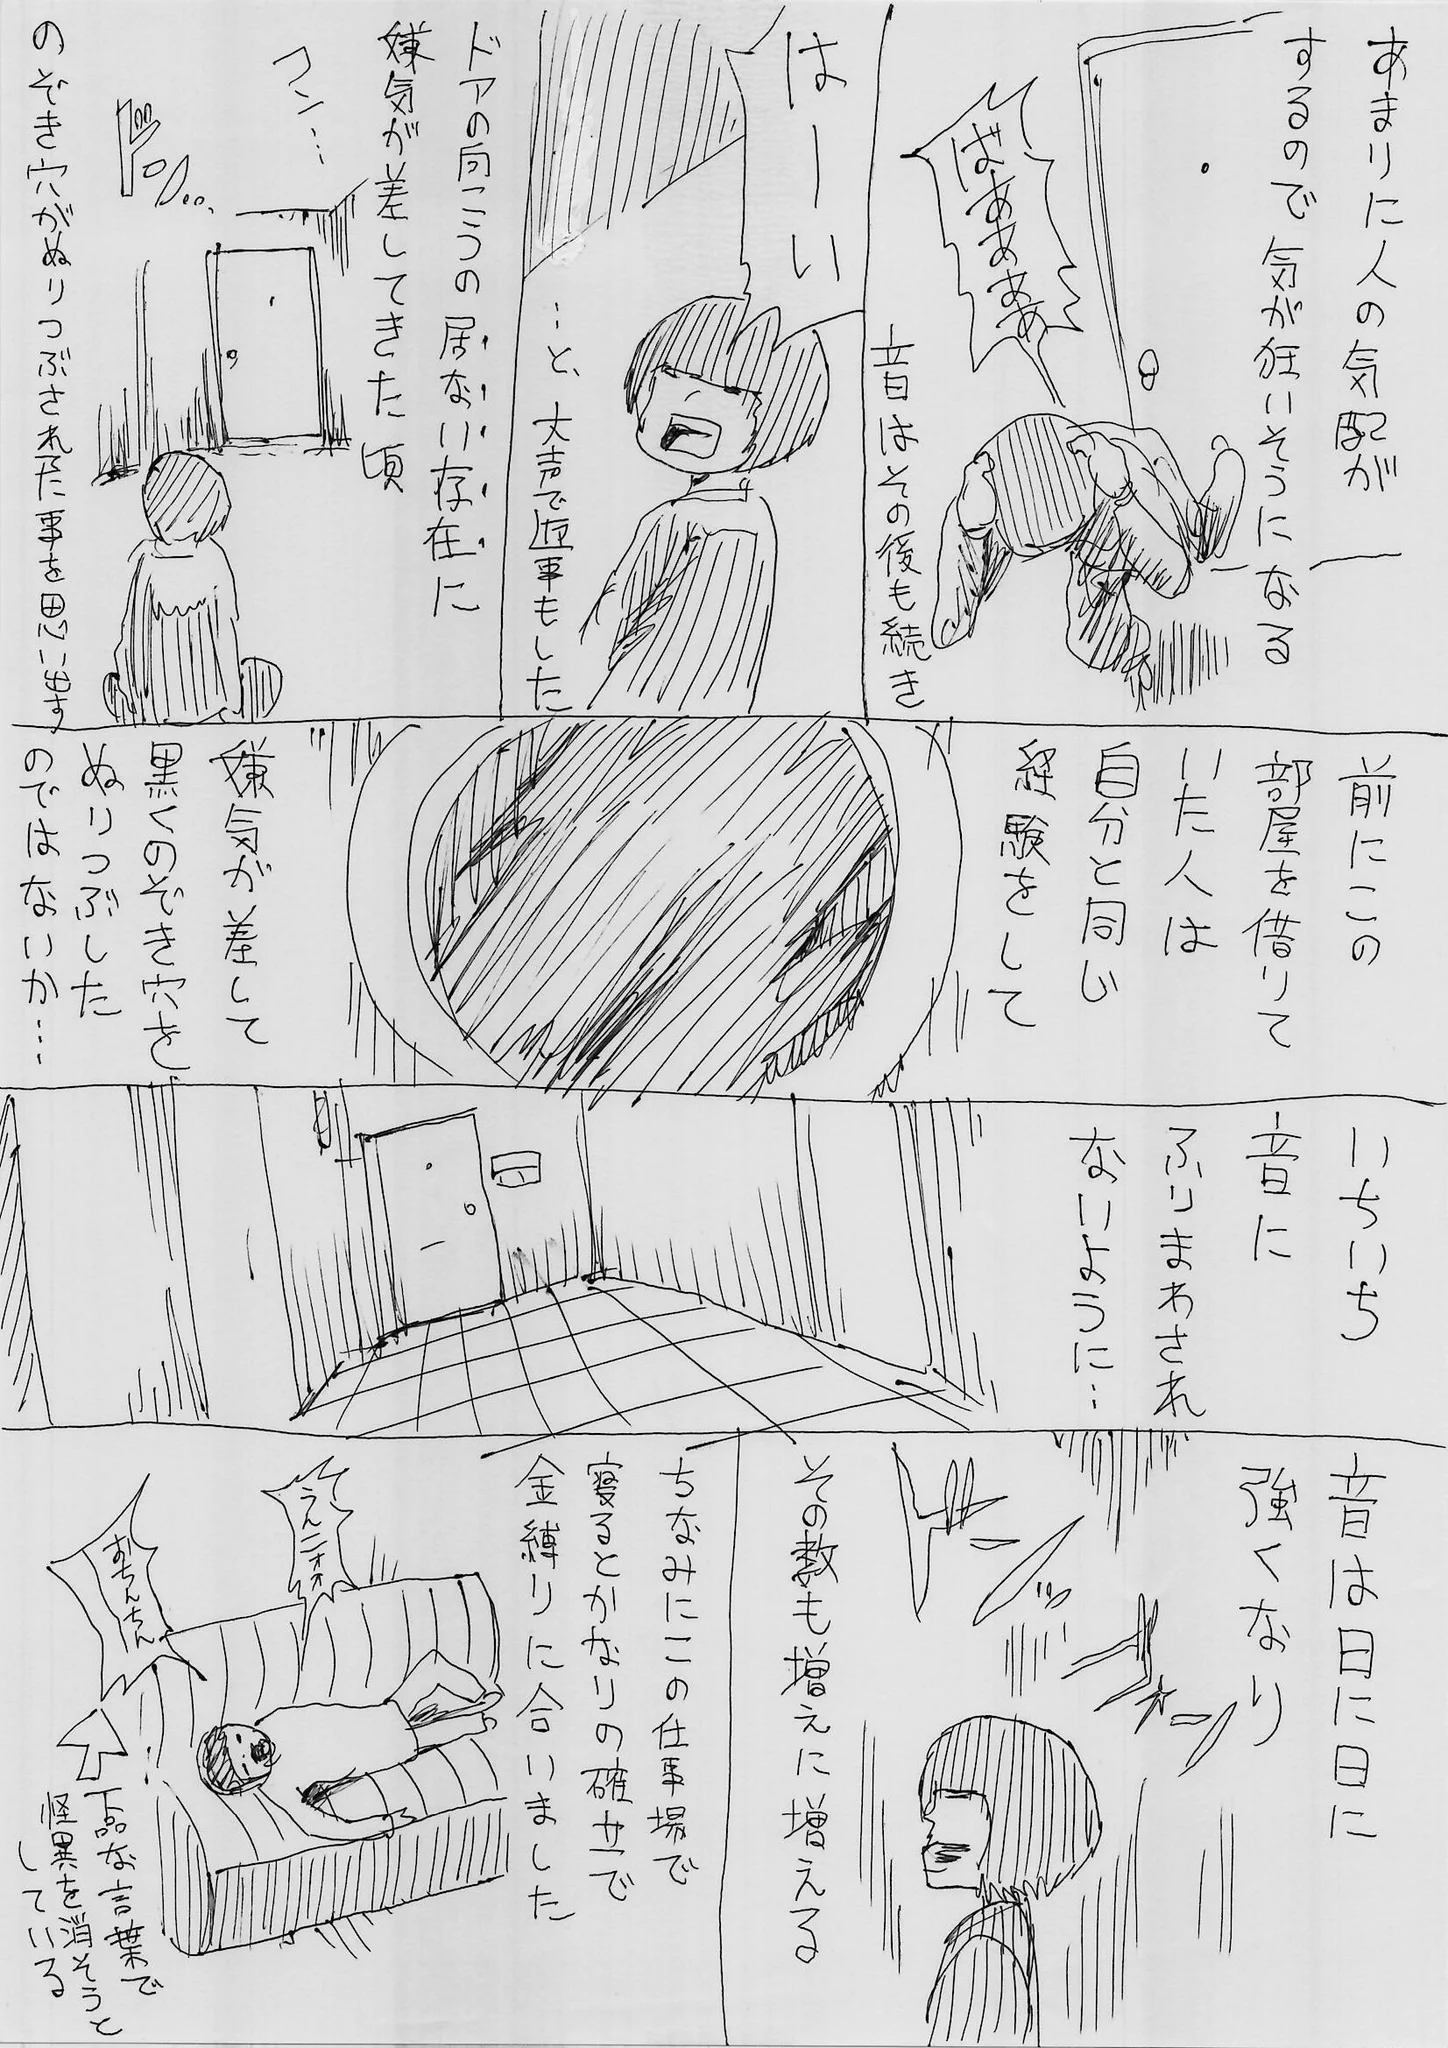 あまりに人の気配が
するので気が狂いそうになる
ばあああああ
音はその後も続き
はーい
…と、大声で返事もした
ドアの向こうの居ない存在に
嫌気が差してきた頃
コン…
ドン…
のぞき穴がぬりつぶされた事を思い出す
前にこの
部屋を借りて
いた人は
自分と同じ
経験をして
嫌気が差して
黒くのぞき穴を
ぬりつぶした
のではないか…
いちいち
音に
ふりまわされ
ないように…
音は日に日に
強くなり
その数も増えに増える
ちなみにこの仕事場で
寝るとかなりの確立で
金縛りに合いました
おちんちん
下品な言葉で
怪異を消そうと
している